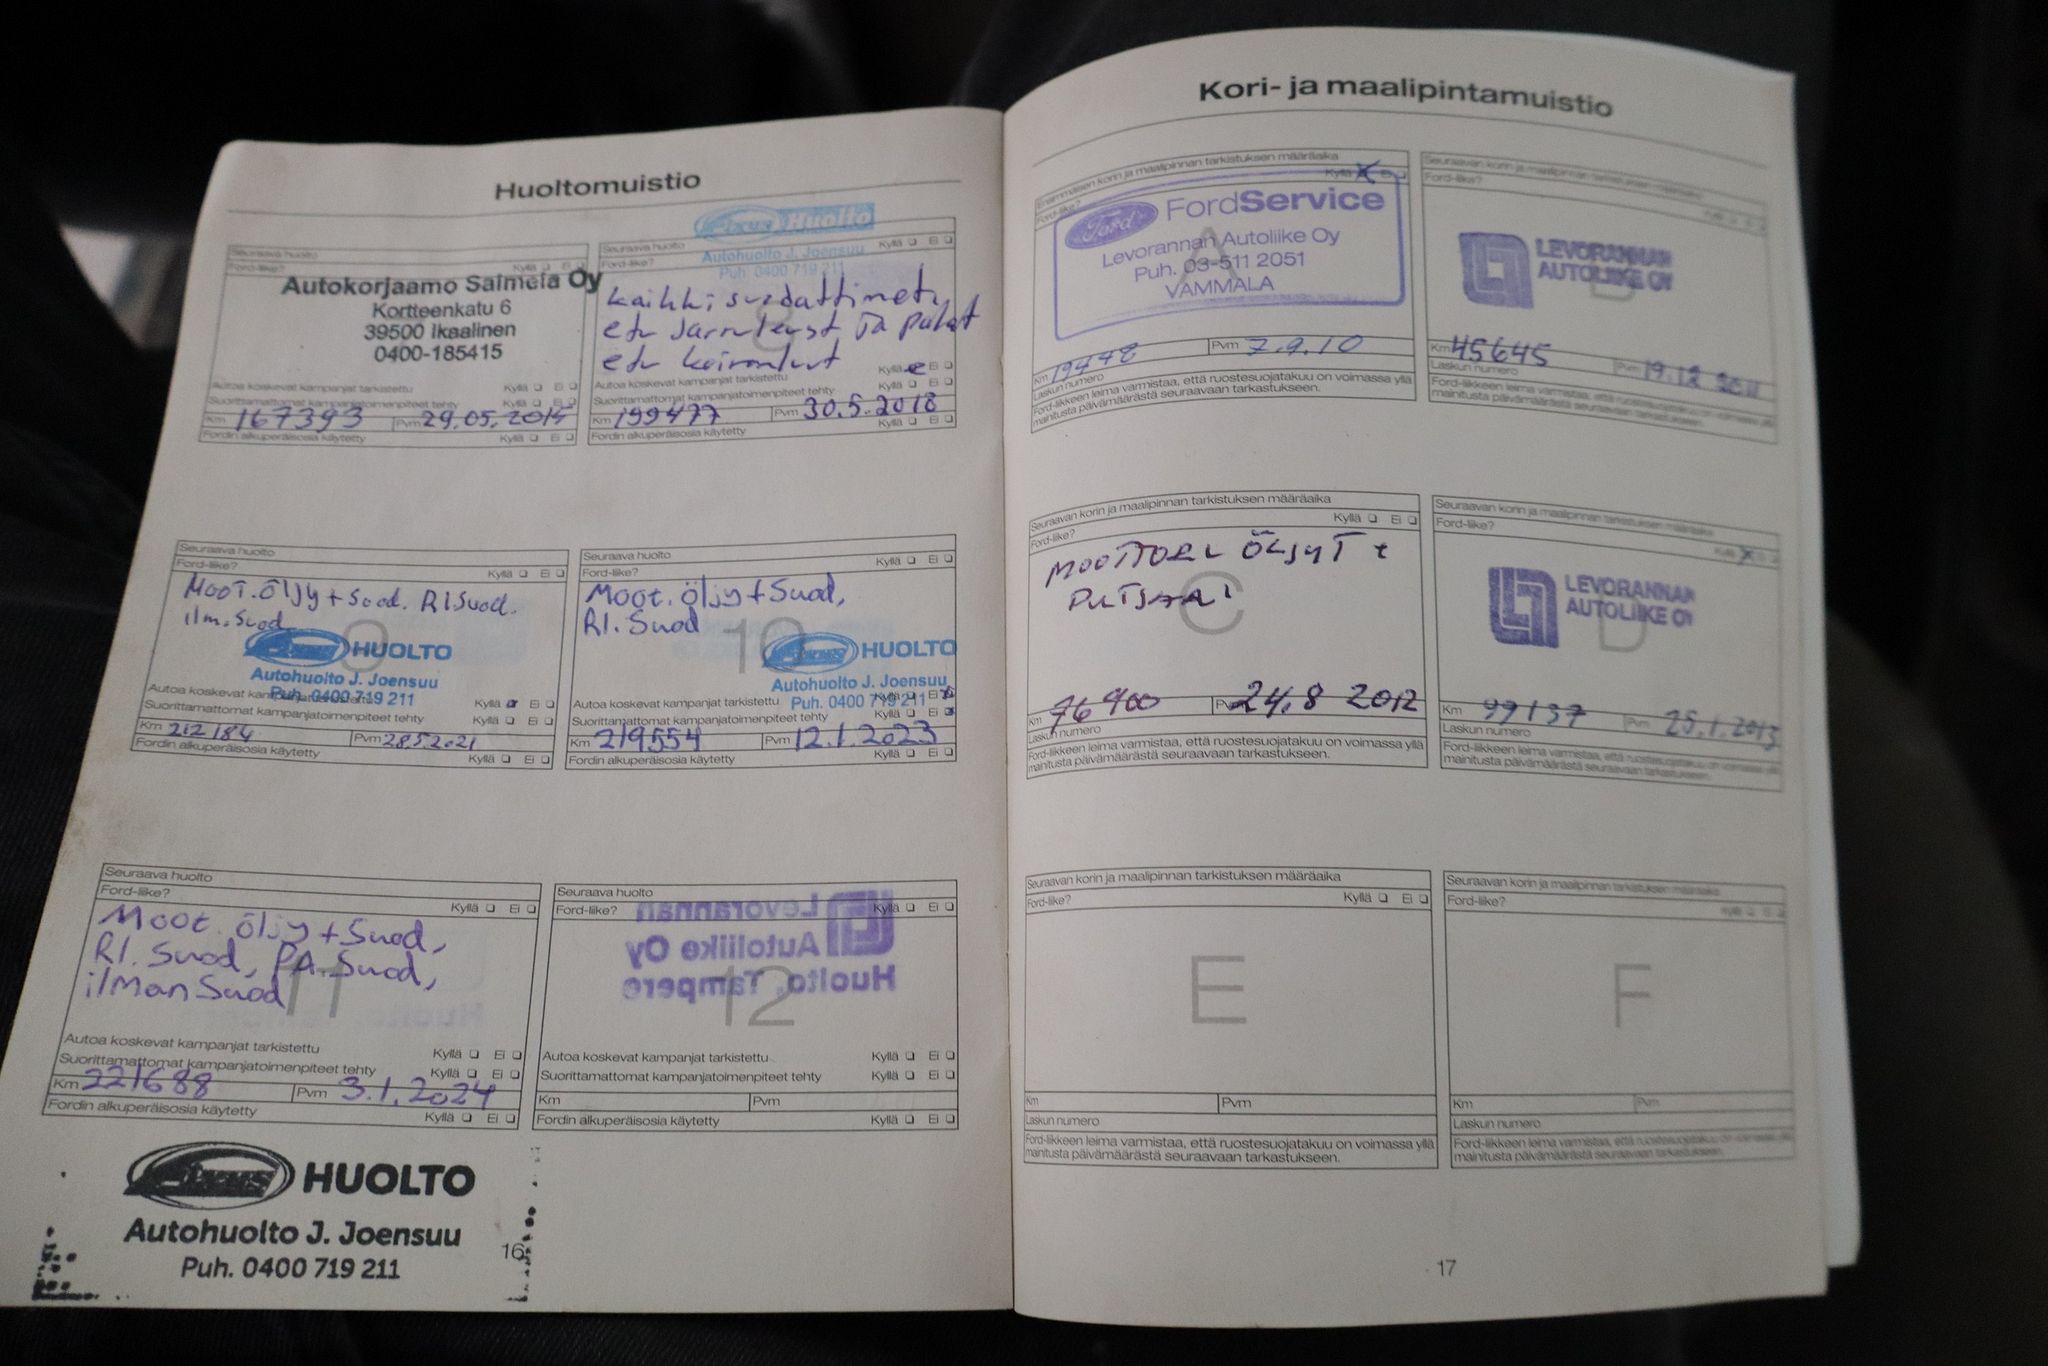 Huoltomuistio
Seuraava huolto
Ford-like?
Kyllä Ei
Autokorjaamo Salmela Oy
Kortteenkatu 6
39500 Ikaalinen
0400-185415
Autoa koskevat kampanjat tarkistettu Kyllä Ei
Suorittamattomat kampanjatoimenpiteet tehty Kyllä Ei
Km 167393 Pvm 29.05.2015
Fordin alkuperäisosia käytetty Kyllä Ei
Huolto
Seuraava huolto
Ford-like? Kyllä Ei
Autohuolto J. Joensuu
Puh. 0400 719 211
kaikki suodattimet,
etu jarrulevyt ja palat
etu
Autoa koskevat kampanjat tarkistettu Kyllä Ei
Suorittamattomat kampanjatoimenpiteet tehty Kyllä Ei
Km 199477 Pvm 30.5.2018
Fordin alkuperäisosia käytetty Kyllä Ei
Seuraava huolto
Ford-like? Kyllä Ei
Moot.öljy+Suod. RI.Suod.
ilm.Suod
9
HUOLTO
Autohuolto J. Joensuu
Puh. 0400 719 211
Autoa koskevat kampanjat tarkistettu Kyllä Ei
Suorittamattomat kampanjatoimenpiteet tehty Kyllä Ei
Km 212184 Pvm 28.5.2021
Fordin alkuperäisosia käytetty Kyllä Ei
Seuraava huolto
Ford-like? Kyllä Ei
Moot.öljy+Suod,
RI.Suod
10
HUOLTO
Autohuolto J. Joensuu
Puh. 0400 719 211
Autoa koskevat kampanjat tarkistettu Kyllä Ei
Suorittamattomat kampanjatoimenpiteet tehty Kyllä Ei
Km 219554 Pvm 12.1.2023
Fordin alkuperäisosia käytetty Kyllä Ei
Seuraava huolto
Ford-like? Kyllä Ei
Moot.öljy+Suod,
RI.Suod, PA.Suod,
ilman Suod
11
Autoa koskevat kampanjat tarkistettu Kyllä Ei
Suorittamattomat kampanjatoimenpiteet tehty Kyllä Ei
Km 221688 Pvm 3.1.2024
Fordin alkuperäisosia käytetty Kyllä Ei
HUOLTO
Autohuolto J. Joensuu
Puh. 0400 719 211
Seuraava huolto
Ford-like? Kyllä Ei
Levorannan
Autoliike Oy
Huolto, Tampere
12
Autoa koskevat kampanjat tarkistettu Kyllä Ei
Suorittamattomat kampanjatoimenpiteet tehty Kyllä Ei
Km Pvm
Fordin alkuperäisosia käytetty Kyllä Ei
16
Kori- ja maalipintamuistio
Ensimmäisen korin ja maalipinnan tarkistuksen määräaika
Ford-like? Kyllä Ei
Ford FordService
A
Levorannan Autoliike Oy
Puh. 03-511 2051
VAMMALA
Km 19478 Pvm 7.9.10
Laskun numero
Ford-liikkeen leima varmistaa, että ruostesuojatakuu on voimassa yllä
mainitusta päivämäärästä seuraavaan tarkastukseen.
Seuraavan korin ja maalipinnan tarkistuksen määräaika
Ford-like?
LEVORANNAN
AUTOLIIKE OY
Km 45645 Pvm 19.12.2011
Laskun numero
Ford-liikkeen leima varmistaa, että ruostesuojatakuu on voimassa yllä
mainitusta päivämäärästä seuraavaan tarkastukseen.
Seuraavan korin ja maalipinnan tarkistuksen määräaika
Ford-like? Kyllä Ei
MOOTTORI ÖLJYT +
C
Km 76900 Pvm 24.8 2012
Laskun numero
Ford-liikkeen leima varmistaa, että ruostesuojatakuu on voimassa yllä
mainitusta päivämäärästä seuraavaan tarkastukseen.
Seuraavan korin ja maalipinnan tarkistuksen määräaika
Ford-like? Kyllä Ei
LEVORANNAN
AUTOLIIKE OY
D
Km 99137 Pvm 25.1.2013
Laskun numero
Ford-liikkeen leima varmistaa, että ruostesuojatakuu on voimassa yllä
mainitusta päivämäärästä seuraavaan tarkastukseen.
Seuraavan korin ja maalipinnan tarkistuksen määräaika
Ford-like? Kyllä Ei
E
Km Pvm
Laskun numero
Ford-liikkeen leima varmistaa, että ruostesuojatakuu on voimassa yllä
mainitusta päivämäärästä seuraavaan tarkastukseen.
Seuraavan korin ja maalipinnan tarkistuksen määräaika
Ford-like? Kyllä Ei
F
Km Pvm
Laskun numero
Ford-liikkeen leima varmistaa, että ruostesuojatakuu on voimassa yllä
mainitusta päivämäärästä seuraavaan tarkastukseen.
17